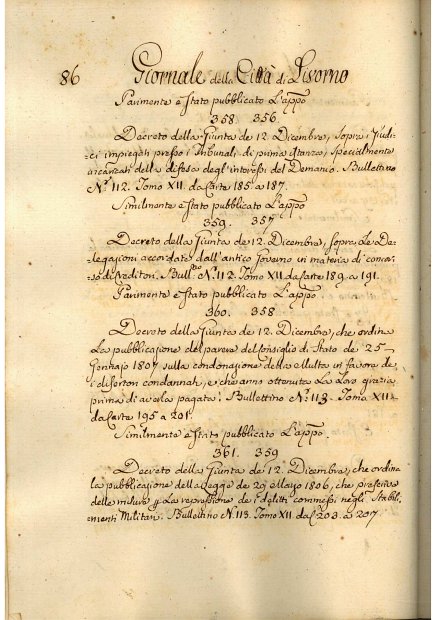 86 Giornale della Città di Livorno
Parimente è stato pubblicato L'appo
358. 356.
Decreto della Giunta de 12. Dicembre, sopra i Giudi-
ci impiegati presso i Tribunali di prima istanza, specialmente
incaricati della difesa degl'interessi del Demanio. Bullettino
N.º 112. Tomo XII. da Carte 185. a 187.
Similmente è stato pubblicato L'appo
359. 357
Decreto della Giunta de 12. Dicembre, sopra Le De-
legazioni accordate dall'antico Governo in materia di concor-
so di Creditori. Bullno N. 112. Tomo XII da Carte 189. a 191.
Parimente è stato pubblicato L'appo
360. 358
Decreto della Giunta de 12. Dicembre, che ordina
La pubblicazione del parere del Consiglio di Stato de 25
Gennajo 1807 sulla condonazione della Multa in favore de
i disertori condannati, e che anno ottenuta La Loro grazia
prima di averla pagata. Bullettino N.º 113. Tomo XII
da Carte 195 a 201.
Similmente è stato pubblicato L'appo
361. 359
Decreto della Giunta de 12. Dicembre, che ordina
la pubblicazione della Legge de 29 Maggio 1806, che prescrive
delle misure La repressione de i delitti commessi negli Stabili-
menti Militari. Bullettino N. 113. Tomo XII da C. 203. a 207.